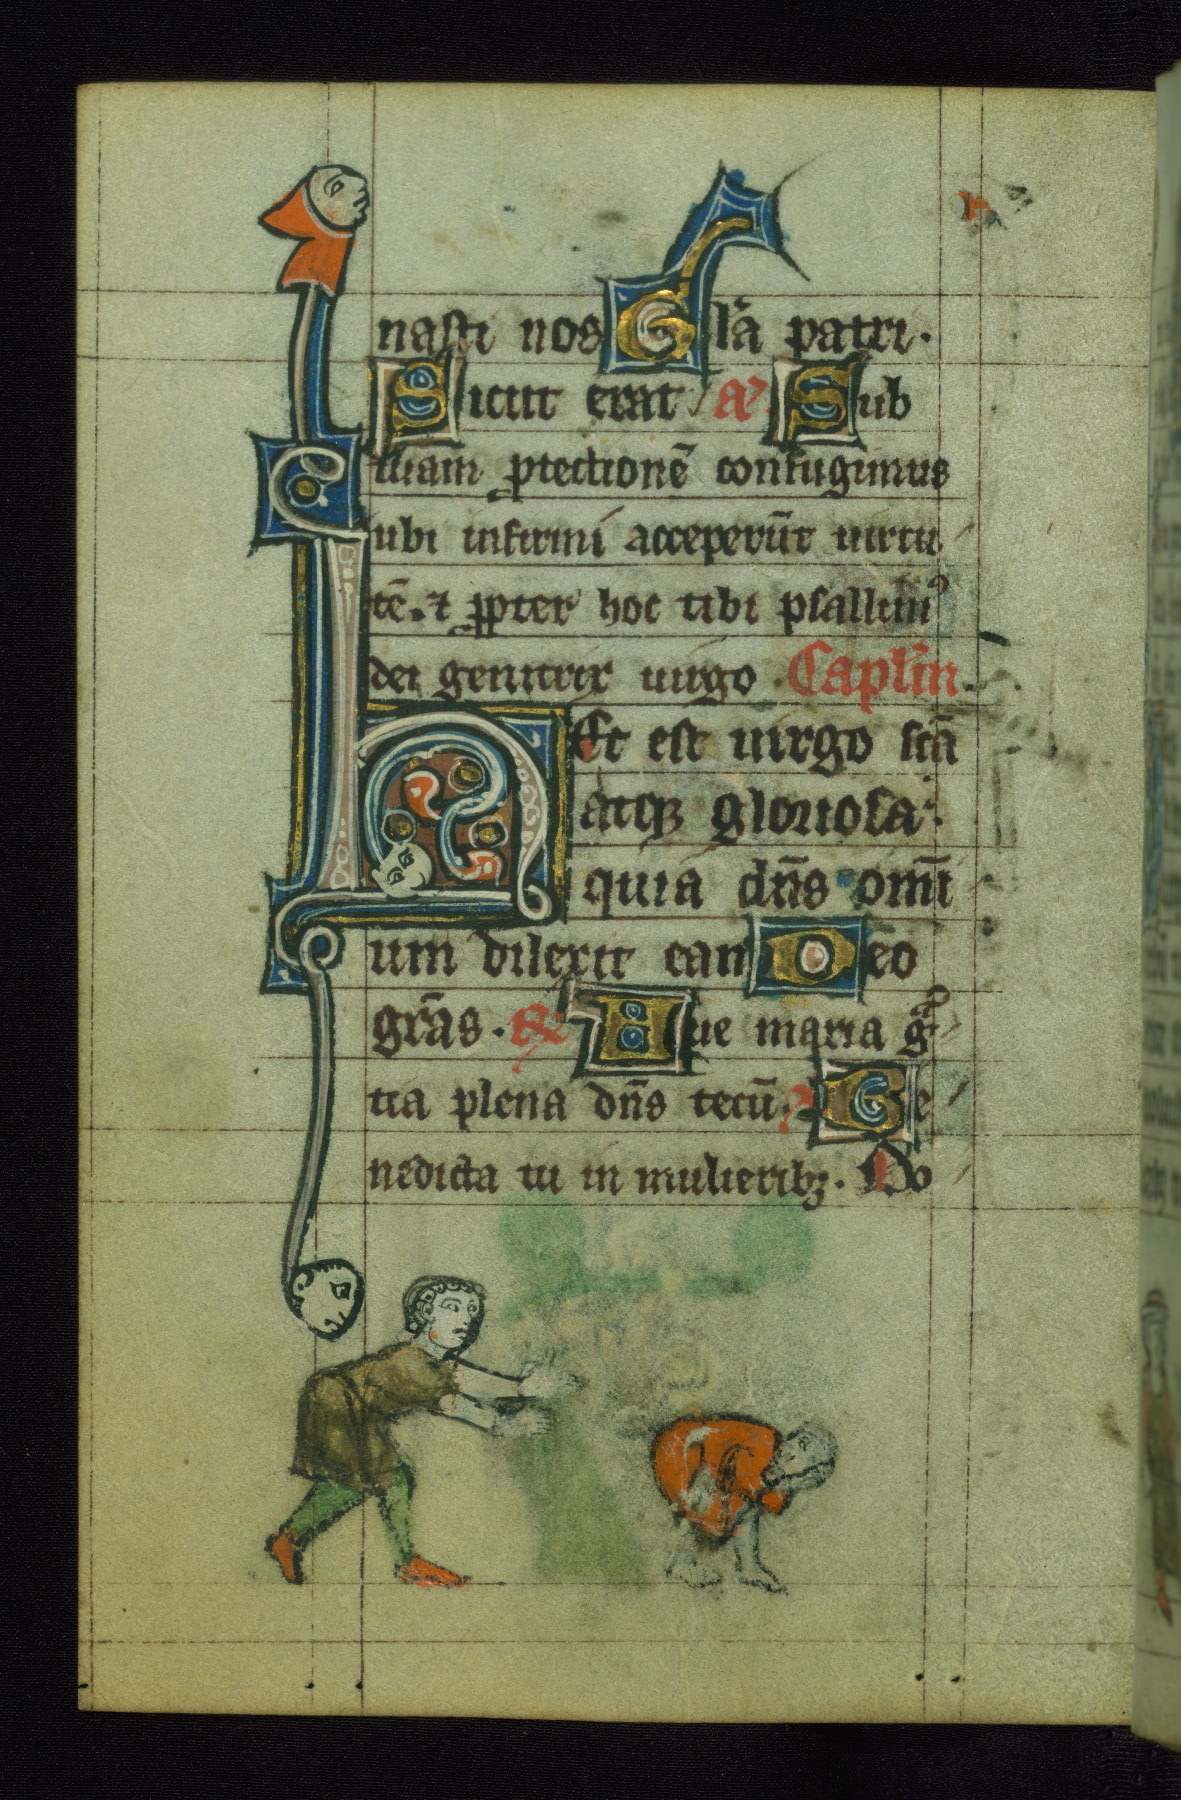 nasti nos Gl̄a patri.
Sicut erat. a͞ Sub
tuam ꝑtectionē confugimus
ubi infirmi acceperūt uirtu
tē. ⁊ ꝓpter hoc tibi psallimꝰ
dei genitrix uirgo. Capl̄m
Hec est uirgo scā
atqꝫ gloriosa.
quia dn̄s omī
um dilexit eam Deo
grās. Aue maria gͣ
tia plena dn̄s tecū. Be
nedicta tu in mulieribꝫ. Do